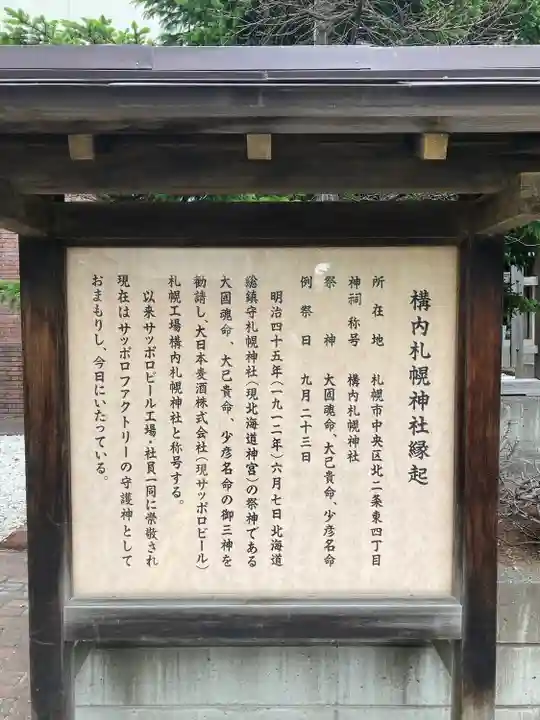 構内札幌神社縁起
所在地 札幌市中央区北二条東四丁目
神祠称号 構内札幌神社
祭神 大国魂命、大己貴命、少彦名命
例祭日 九月二十三日
明治四十五年（一九一二年）六月七日北海道
総鎮守札幌神社（現北海道神宮）の祭神である
大国魂命、大己貴命、少彦名命の御三神を
勧請し、大日本麦酒株式会社（現サッポロビール）
札幌工場構内札幌神社と称号する。
以来サッポロビール工場・社員一同に崇敬され
現在はサッポロファクトリーの守護神として
おまもりし、今日にいたっている。